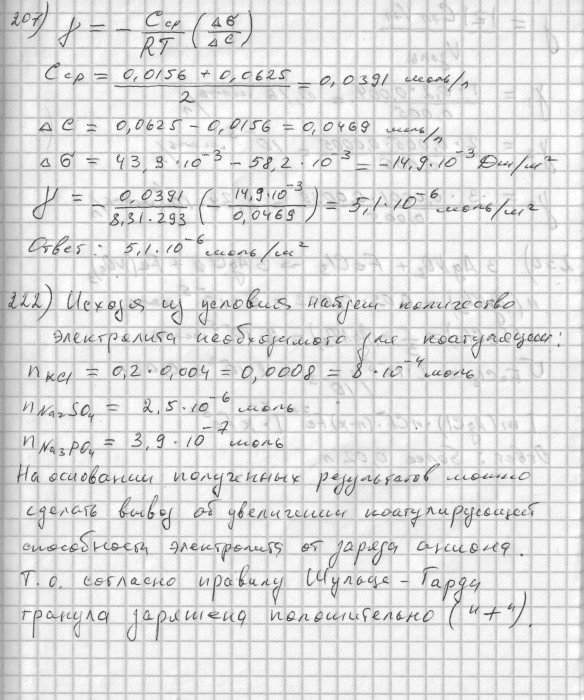 207) γ = - Cср/RT (Δσ/ΔC)
Cср = (0,0156 + 0,0625)/2 = 0,0391 моль/л
ΔC = 0,0625 - 0,0156 = 0,0469 моль/л
Δσ = 43,3·10⁻³ - 58,2·10⁻³ = -14,9·10⁻³ Дж/м²
γ = - 0,0391/(8,31·293) (- 14,9·10⁻³/0,0469) = 5,1·10⁻⁶ моль/м²
Ответ: 5,1·10⁻⁶ моль/м²
222) Исходя из условия найдем количество
электролита необходимого для коагуляции:
nKCl = 0,2·0,004 = 0,0008 = 8·10⁻⁴ моль
nNa₂SO₄ = 2,5·10⁻⁶ моль
nNa₃PO₄ = 3,9·10⁻⁷ моль
На основании полученных результатов можно
сделать вывод об увеличении коагулирующей
способности электролита от заряда аниона.
Т.о. согласно правилу Шульце - Гарди
гранула заряжена положительно ("+").